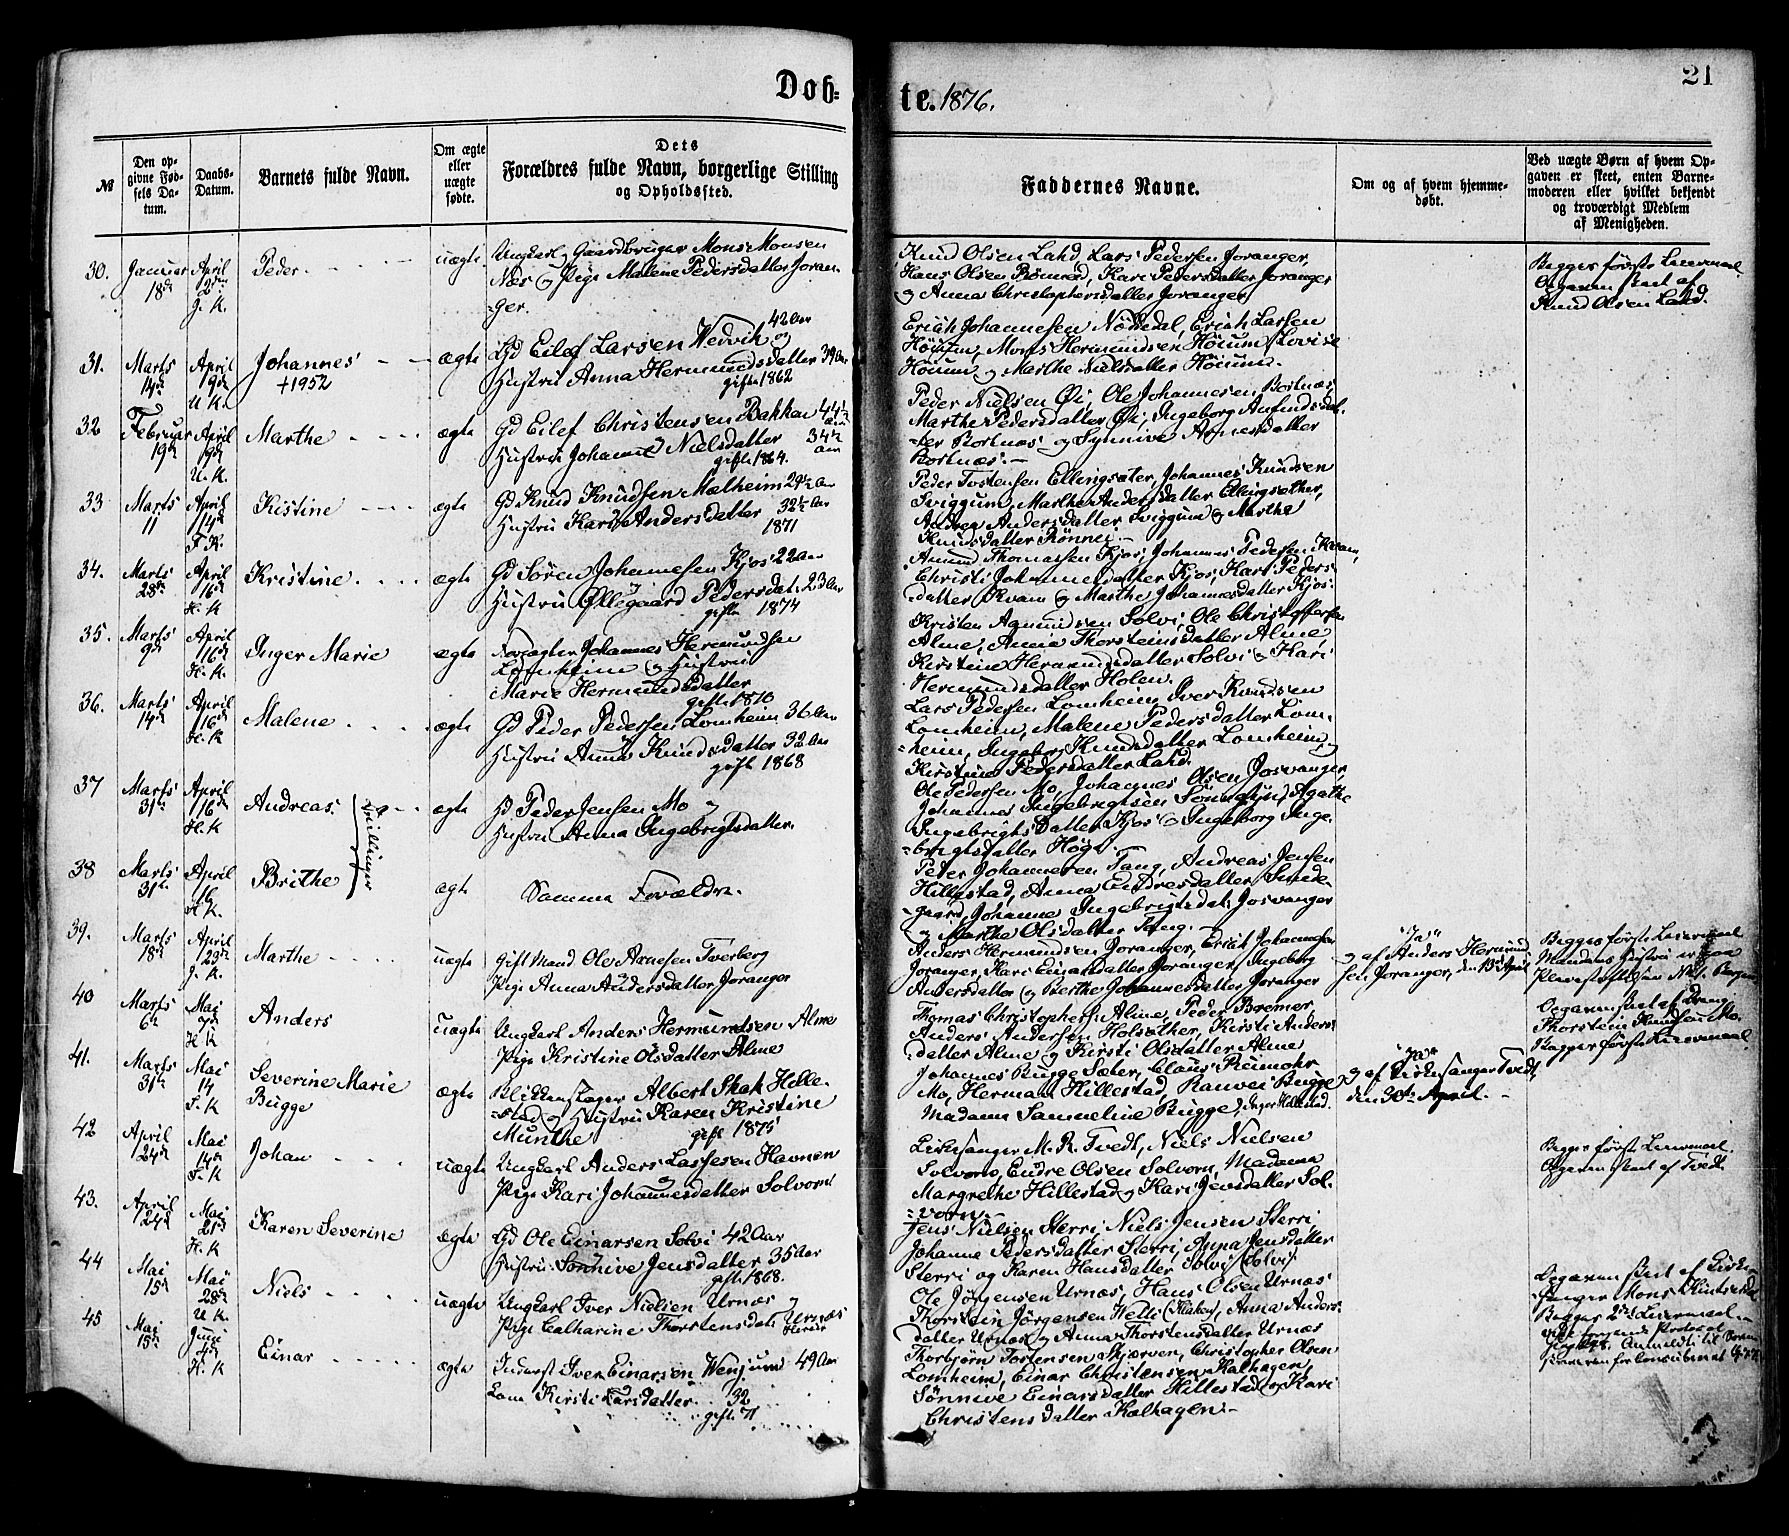 Døb-
te. 1876.
21
№
Den op-
givne Fød-
sels Da-
tum.
Daabs-
Datum.
Barnets fulde Navn.
Om ægte
eller
uægte
fødte.
Dets
Forældres fulde Navn, borgerlige Stilling
og Opholdssted.
Faddernes Navne.
Om og af hvem hjemme-
døbt.
Ved uægte Børn af hvem Op-
gaven er skeet, enten Barne-
moderen eller hvilket bekjendt
og troværdigt Medlem
af Menigheden.
30.
Januar
18de
April
2den
J. K.
Peder
uægte
Ungkarl Gaardbruger Mons Monsen
Næs og Pige Malene Pedersdatter Joran-
ger.
Knud Olsen Lahd, Lars Pedersen Joranger,
Hans Olsen Rønnei, Kari Pedersdatter Joranger
og Anna Christophersdatter Joranger
Begges første Leiermaal
Opgaven skeet af
Knud Olsen Lahd.
31.
Marts
14de
April
9de
U. K.
Johannes
+1952
ægte
Gd Eilef Larsen Wedvik 42 Aar og
Hustru Anna Hermundsdatter 39 Aar
gifte 1862
Erich Johannesen Nøttedal, Erich Larsen
Høium, Mons Hermundsen Høium, Lovise
Høium og Marthe Nielsdatter Høium.
32
Februar
19de
April
9de
U. K.
Marthe
ægte
Gd Eilef Christensen Bakken 44½ Aar
Hustru Johanne Nielsdatter 34½ Aar
gifte 1864.
Peder Nielsen Øi, Ole Johannesen Bortnæs,
Marthe Pedersdatter Øi, Ingeborg Amundsdat-
ter Bortnæs og Synnive Arnesdatter
Bortnæs.
33
Marts
11
April
14de
F. K.
Kristine
ægte
Gd Knud Knudsen Mælheim 29½ Aar
Hustru Kari Andersdatter 32½ Aar
1871
Peder Tostensen Ellingsæter, Johannes Knudsen
Sviggum, Marthe Andersdatter Ellingsæther,
Andrea Andersdatter Sviggum og Marthe
Knudsdatter Rønnei.
34.
Marts
28de
April
16de
H. K.
Kristine
ægte
Gd Søren Johannesen Kjos 22 Aar
Hustru Øllegaard Pedersdat. 23 Aar
gifte 1874
Amund Thomassen Kjos, Johannes Pedersen Kvam,
Christi Johannesdatter Kjos, Kari Peders-
datter Kvam og Marthe Johannesdatter Kjos.
35.
Marts
9de
April
16de
H. K.
Inger Marie
ægte
Johannes Hermundsen
Lomheim og Hustru
Marie Hermundsdatter
gifte 1870
Kristen Amundsen Solvi, Ole Christoffersen
Alme, Anna Thorsteinsdatter Alme
Kirstine Hermundsdatter Solvi og Kari
Hermundsdatter Holen.
36.
Marts
14de
April
16de
H. K.
Malene
ægte
Gd Peder Pedersen Lomheim 36 Aar
Hustru Anna Knudsdatter 32 Aar
gifte 1868
Lars Pedersen Lomheim, Iver Knudsen
Lomheim, Malene Pedersdatter Lom-
heim, Ingeborg Knudsdatter Lomheim og
Kirstine Pedersdatter Lahd.
37
Marts
31te
April
16de
H. K.
Andreas.
Tvillinger
ægte
Gd Peder Jensen Mo og
Hustru Anna Ingebrigtsdatter.
Ole Pedersen Mo, Johannes Olsen Josvanger,
Johannes Ingebrigtsen Sønnesyn, Agathe
Ingebrigtsdatter Kjos og Ingeborg Inge-
brigtsdatter Høgi.
38
Marts
31te
April
16
H. K.
Brithe
ægte
Samme Forældre.
Peder Johannesen Tang, Andreas Jensen
Hillestad, Anna Endresdatter Sande-
gaard, Johanne Ingebrigtsdat. Josvanger
og Marthe Olsdatter Tang.
39.
Marts
18de
April
23de
J. K.
Marthe
uægte
Gift Mand Ole Arnesen Tverberg
Pige Anna Andersdatter Joranger
Anders Hermundsen Joranger, Erich Johannesen
Joranger, Kari Einarsdatter Joranger, Ingeborg
Andersdatter og Berthe Johannesdatter Joranger
"Ja"
og af Anders Hermund-
sen Joranger, den 13de April
Begges første Leiermaal
Mandens Hustru er paa
Pleiestiftelsen No 1. Bergen
40
Marts
6te
Mai
7de
H. K.
Anders
uægte
Ungkarl Anders Hermundsen Alme
Pige Kristine Olsdatter Alme
Thomas Christophersen Alme, Peder Bremer
Anders Andersen Holsæther, Kirsti Anders-
datter Alme og Kirsti Olsdatter Alme
Opgaven skeet af
Thorstein Knudsen Mo.
Begges første Leiermaal
41.
Marts
31te
Mai
14
F. K
Severine Marie
Bugge
ægte
Blikkenslager Albert Skak Hille-
stad og Hustru Karen Kristine
Munthe gift 1875
Johannes Bugge Sæter, Claus Riumohr
Mo, Herman Hillestad, Ranvei Bugge
Madame Samueline Bugge, Inger Hillestad.
"Ja"
og af Kirkesanger Tvedt,
den 30te April.
42
April
24de
Mai
14de
F. K
Johan
uægte
Ungkarl Anders Lassesen Havnen
Pige Kari Johannesdatter Solvorn
Kirkesanger M. R. Tvedt, Niels Nielsen
Solvorn, Endre Olsen Solvorn, Madame
Margrethe Hillestad og Kari Jensdatter Sol-
vorn.
Begges første Leiermaal
Opgaven skeet af Tvedt
43.
April
24de
Mai
21de
H. K
Karen Severine
ægte
Gd Ole Einarsen Solvi 42 Aar
Hustru Sønnive Jensdatter 35 Aar
gifte 1868.
Jens Nielsen Sterri, Niels Jensen Sterri,
Johanne Pedersdatter Sterri, Anna Jensdatter
Sterri og Karen Hansdatter Solvi (Solvi)
44
Mai
15de
Mai
28de
U. K.
Niels
uægte
Ungkarl Iver Nielsen Urnæs og
Pige Catharine Thorstensdat. Urnæs
Ole Jørgensen Urnæs, Hans Olsen Urnæs
Thorstein Jørgensen Helle (Flahen), Anna Anders-
datter Urnæs og Anna Thorstensdatter Urnæs
Opgaven skeet af Kirke-
sanger Mons
Begges 2det Leiermaal
45
Mai
15de
Juni
4de
H. K
Einar
ægte
Inderst Iver Einarsen Wenjum 49 Aar
Kone Kirsti Larsdatter 32
gifte 71
Thorbjørn Tostensen Skjærven, Christopher Olsen
Lomheim, Einar Christensen Kalhagen,
Sønnive Einarsdatter Hillestad og Kari
Christensdatter Kalhagen.